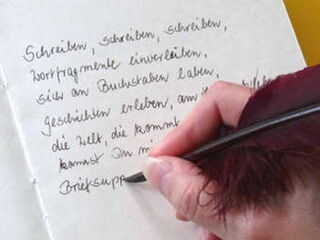 Schreiben, schreiben, schreiben,
Wortfragmente einverleiben,
sich an Buchstaben laben,
Geschichten erleben, am
die Welt, die kommt
kommst Du mi
Briefsupp